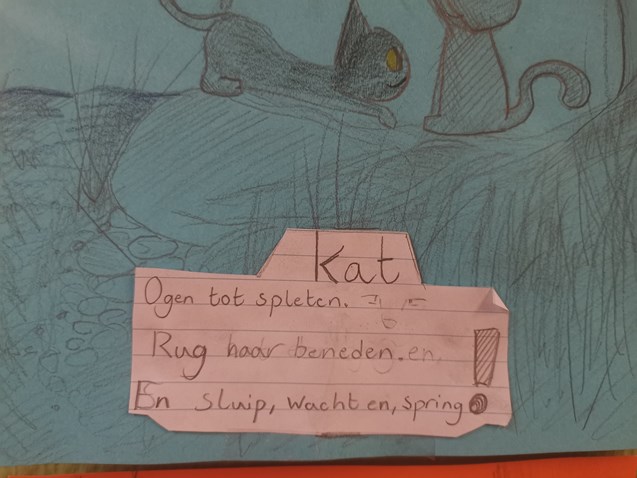 Kat
Ogen tot spleten.
Rug haar beneden.en
En sluip, wachten, spring!